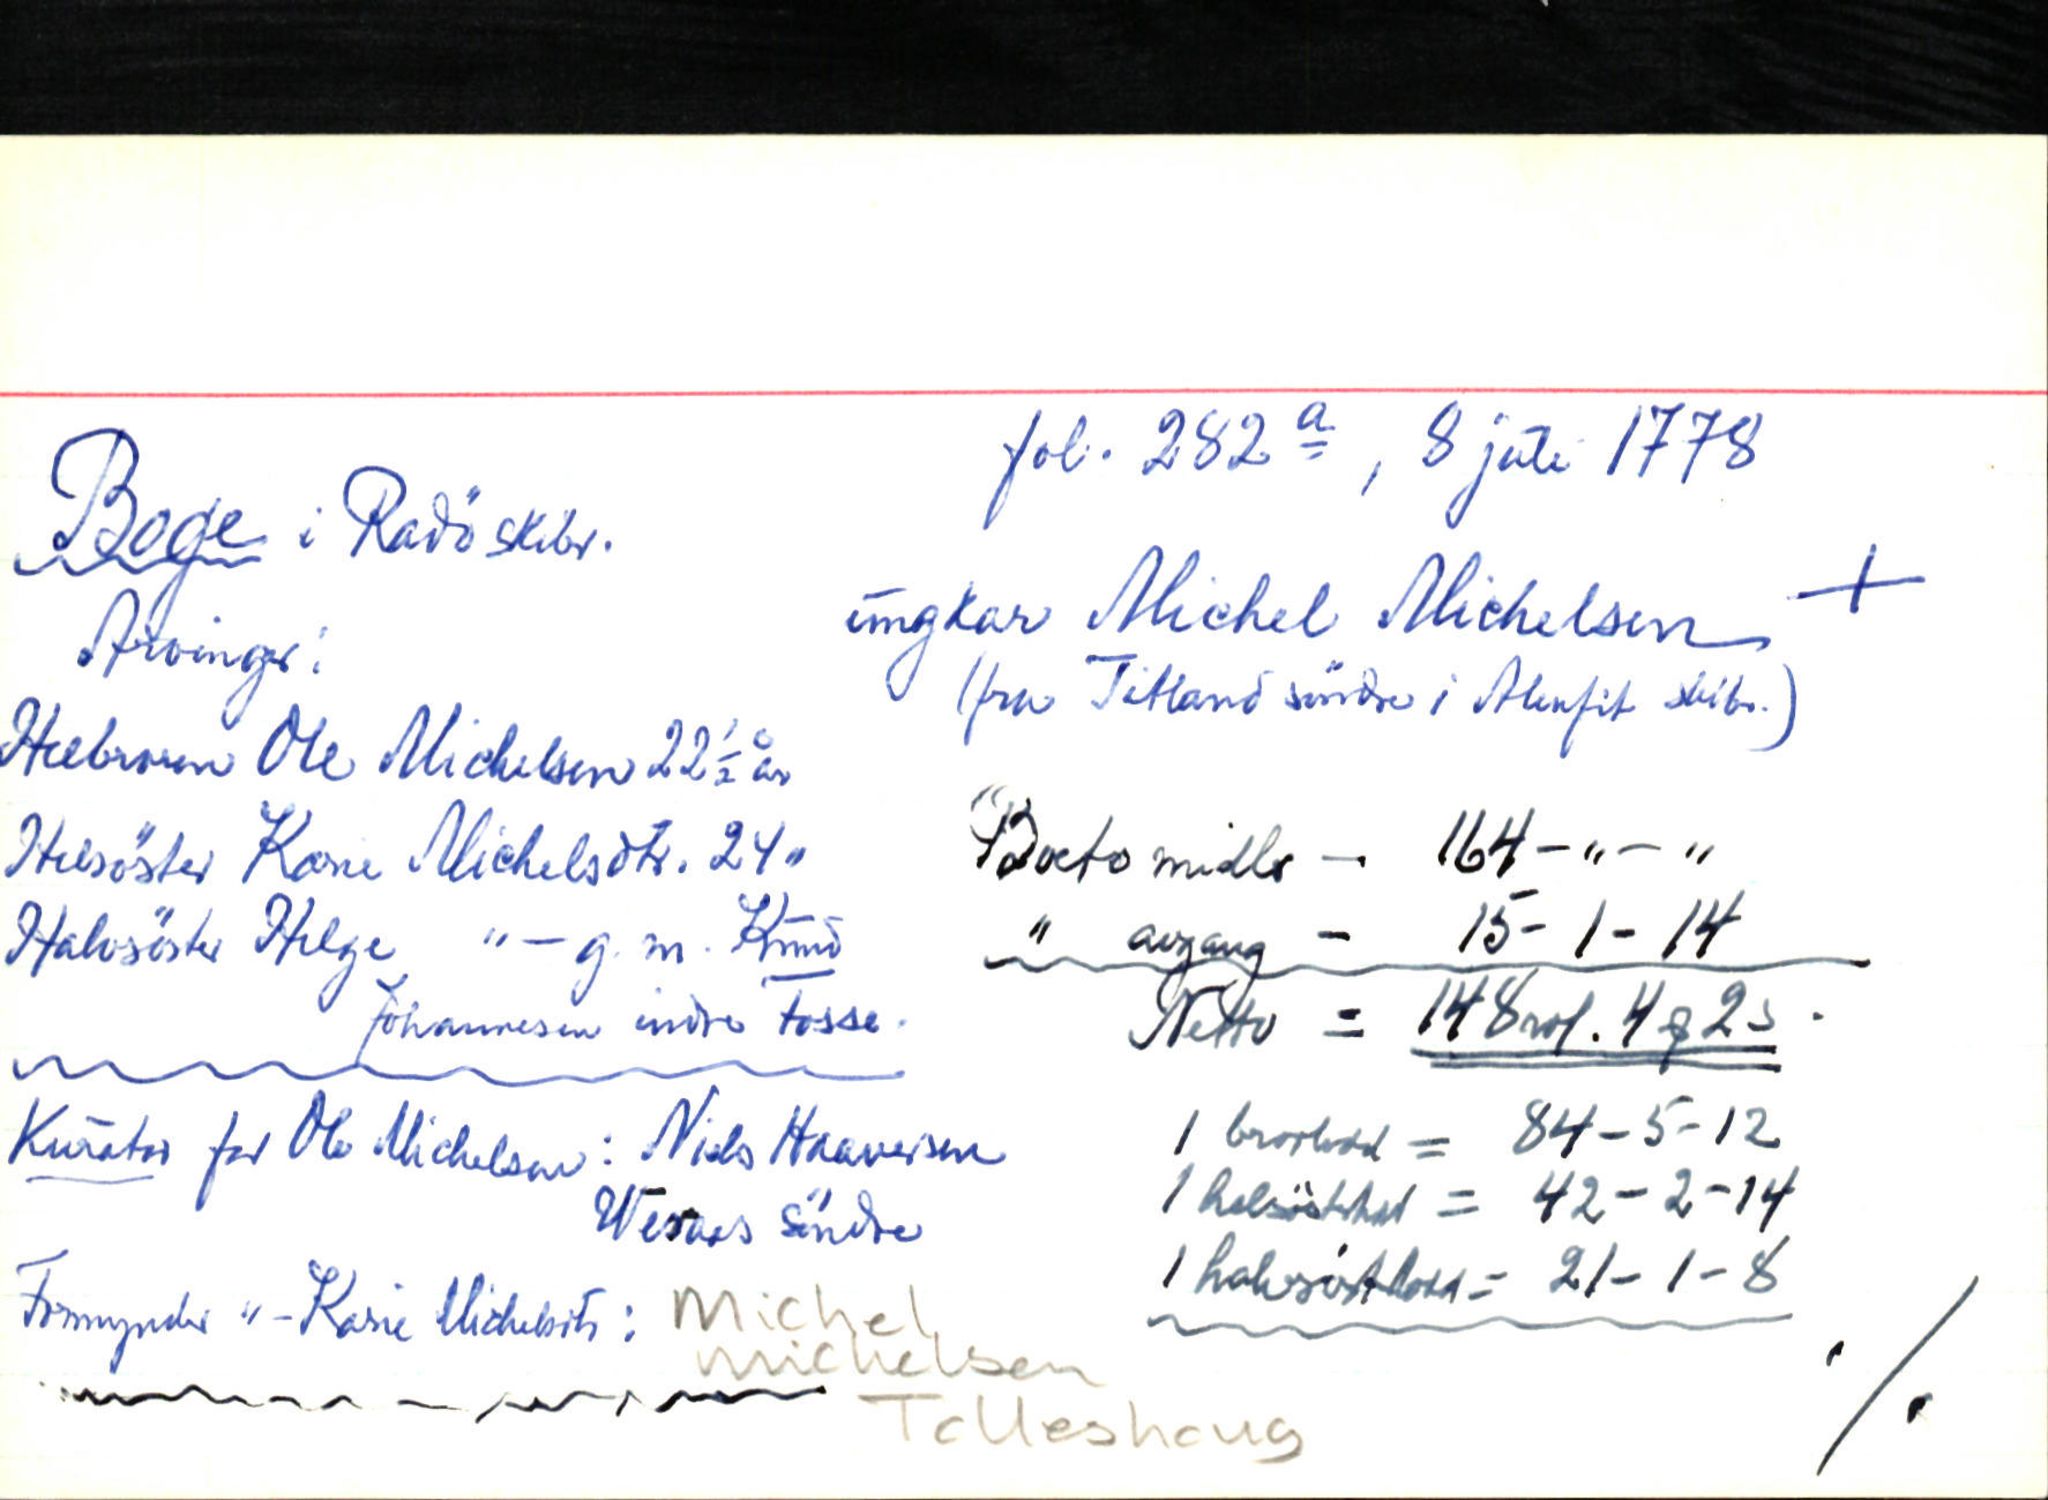 fol. 282 a, 8 juli 1778
Boge i Radö skibr.
ungkar Michel Michelsen +
(fra Titland söndre i Alenfit skibr.)
Arvinger:
Helbroren Ole Michelsen 22 1/2 år
Helsöster Karie Michelsdtr. 24 "
Halvsöster Helge " - g. m. Knud
Johannesen indre Fosse.
Boets midler - 164 - " - "
" avgang - 15 - 1 - 14
Netto = 148 rdl. 4 ƒ 2 s.
1 brorlodd = 84 - 5 - 12
1 helsösterlodd = 42 - 2 - 14
1 halvsösterlodd = 21 - 1 - 8
Kurator for Ole Michelsen: Niels Haaversen
söndre
Formynder " - Karie Michelsdtr:
Michel
Michelsen
Talleshaug
./.